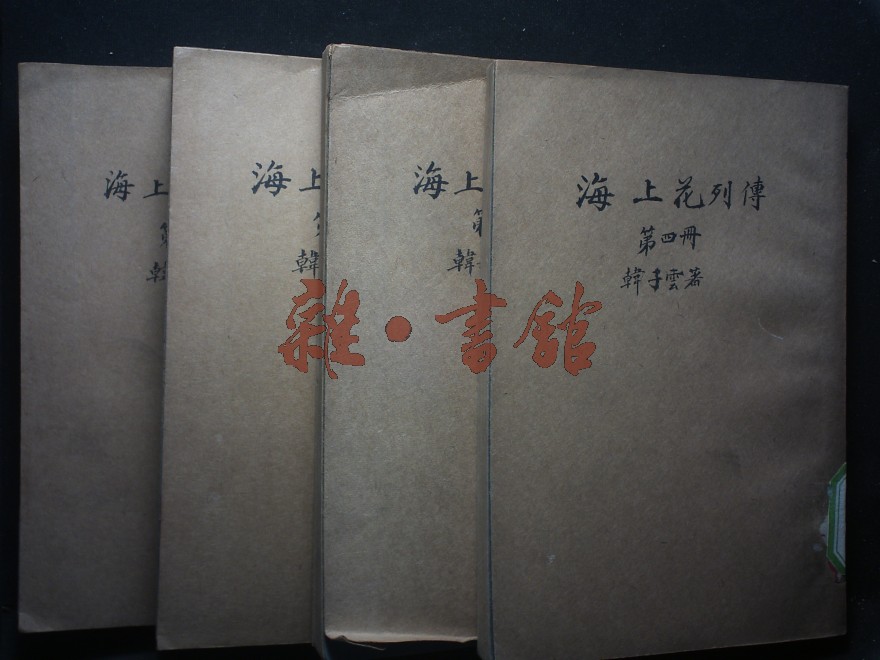 海上
韓
海上
韓
海上
第
韓
海上花列傳
第四冊
韓子雲著
雜·書館